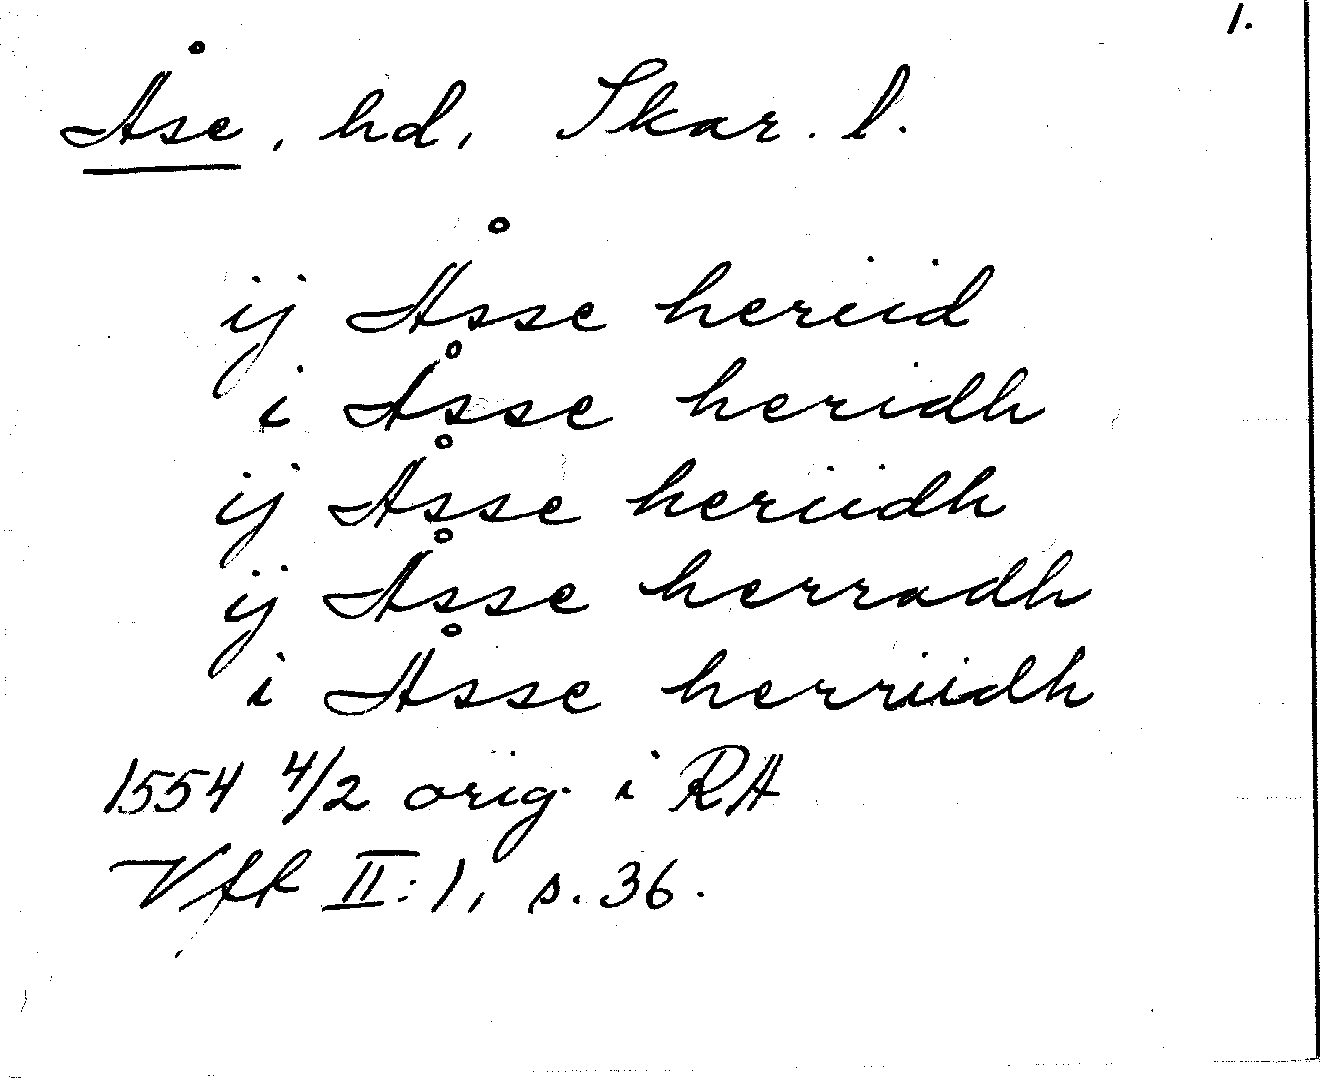 1.
Åse, hd, Skar. l.
ij Åsse heriid
i Åsse heridh
ij Åsse heriidh
ij Åsse herradh
i Åsse herriidh
1554 4/2 orig. i RA
Vfk II:1, s. 36.